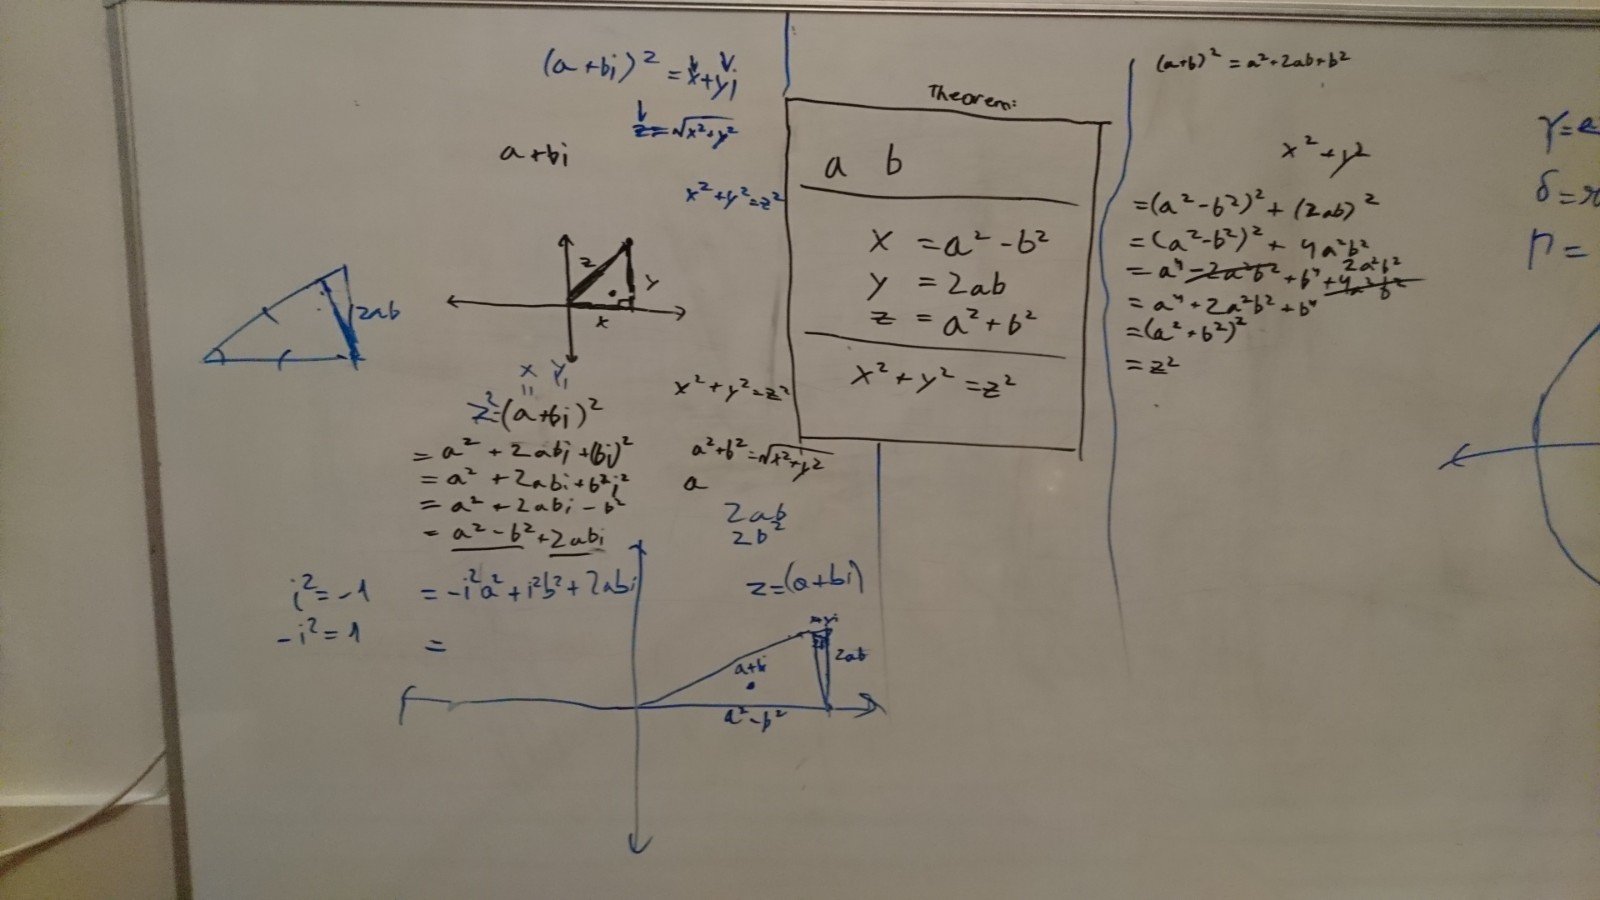 (a+bi)² = x+yi
z=√x²+y²
a+bi
x²+y²=z²
z
y
x
2ab
x y
z²=(a+bi)²
= a² + 2abi +(bi)²
= a² + 2abi+b²i²
= a² + 2abi - b²
= a² - b² + 2abi
i²=-1
-i²=1
= -i²a² + i²b² + 2abi
=
x²+y²=z²
a²+b²=√x²+y²
a
2ab
2b²
z=(a+bi)
x+yi
a+bi
2ab
a²-b²
Theorem:
a b
x = a² - b²
y = 2ab
z = a² + b²
x² + y² = z²
(a+b)² = a²+2ab+b²
x² + y²
=(a²-b²)² + (2ab)²
=(a²-b²)² + 4a²b²
= a⁴ - 2a²b² + b⁴ + 4a²b² 2a²b²
= a⁴ + 2a²b² + b⁴
=(a²+b²)²
= z²
γ=
δ=
Γ=